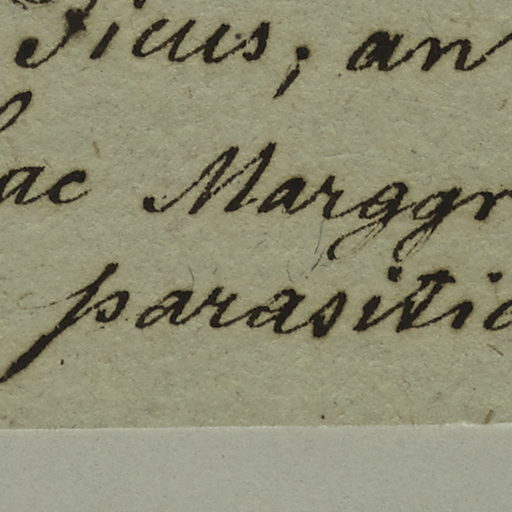 Ficus; an
ac Marggr
parasitic